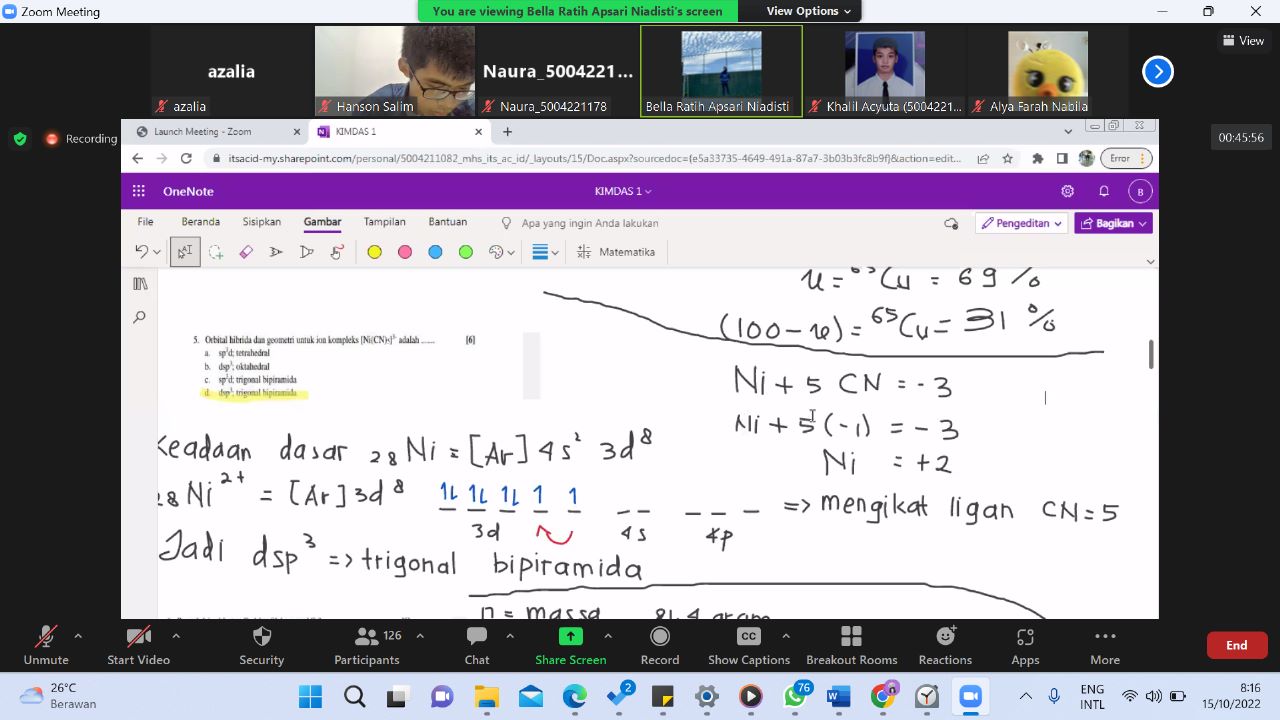 Zoom Meeting
You are viewing Bella Ratih Apsari Niadisti's screen
View Options
azalia
Naura_5004221...
View
azalia
Hanson Salim
Naura_5004221178
Bella Ratih Apsari Niadisti
Khalil Acyuta (5004221...
Alya Farah Nabila
Recording
00:45:56
Launch Meeting - Zoom
KIMDAS 1
itsacid-my.sharepoint.com/personal/5004211082_mhs_its_ac_id/_layouts/15/Doc.aspx?sourcedoc={e5a33735-4649-491a-87a7-3b03b3fc8b9f}&action=edit...
Error
OneNote
KIMDAS 1
B
File Beranda Sisipkan Gambar Tampilan Bantuan
Apa yang ingin Anda lakukan
Pengeditan
Bagikan
Matematika
= 69 %
(100-u) = ⁶⁵Cu = 31 %
5. Orbital hibrida dan geometri untuk ion kompleks [Ni(CN)₅]³⁻ adalah ...... [6]
a. sp³d; tetrahedral
b. dsp³; oktahedral
c. sp³d; trigonal bipiramida
d. dsp³; trigonal bipiramida
Ni + 5 CN = -3
Ni + 5 (-1) = -3
Ni = +2
Keadaan dasar ₂₈Ni = [Ar] 4s² 3d⁸
₂₈Ni²⁺ = [Ar] 3d⁸
1L 1L 1L 1 1
3d 4s 4p
=> mengikat ligan CN = 5
Jadi dsp³ => trigonal bipiramida
= massa 81,4 gram
Unmute
Start Video
Security
Participants
126
Chat
Share Screen
Record
CC
Show Captions
Breakout Rooms
Reactions
Apps
More
End
26°C
Berawan
2
76
ENG
INTL
8:16
15/10/2022